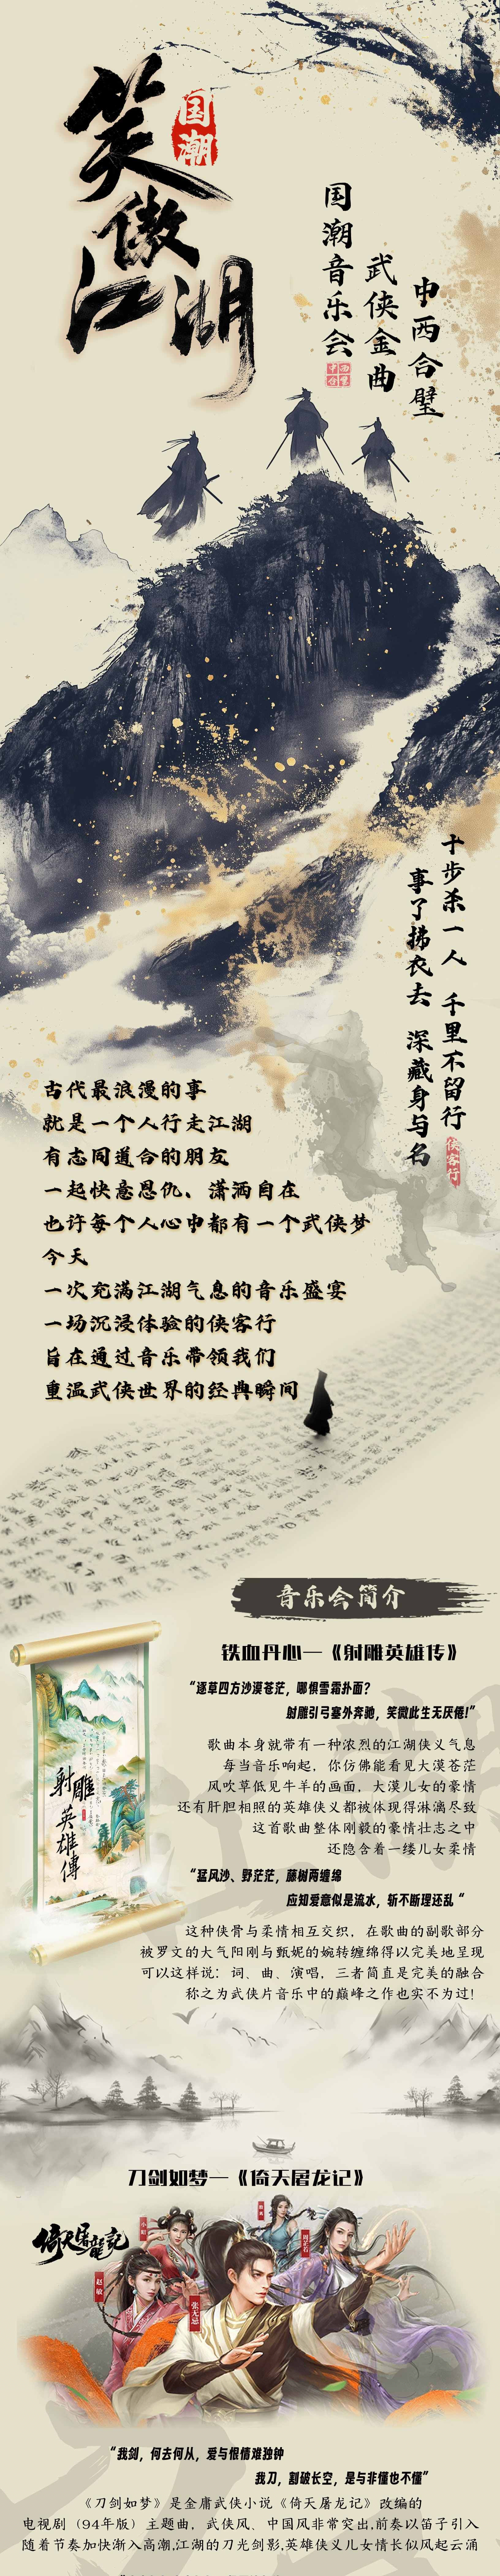 笑傲江湖
国潮
国潮音乐会
武侠金曲
中西合璧
十步杀一人 千里不留行
事了拂衣去 深藏身与名
侠客行
古代最浪漫的事
就是一个人行走江湖
有志同道合的朋友
一起快意恩仇、潇洒自在
也许每个人心中都有一个武侠梦
今天
一次充满江湖气息的音乐盛宴
一场沉浸体验的侠客行
旨在通过音乐带领我们
重温武侠世界的经典瞬间
音乐会简介
铁血丹心—《射雕英雄传》
“逐草四方沙漠苍茫，哪惧雪霜扑面？
射雕引弓塞外奔驰，笑微此生无厌倦!”
歌曲本身就带有一种浓烈的江湖侠义气息
每当音乐响起，你仿佛能看见大漠苍茫
风吹草低见牛羊的画面，大漠儿女的豪情
还有肝胆相照的英雄侠义都被体现得淋漓尽致
这首歌曲整体刚毅的豪情壮志之中
还隐含着一缕儿女柔情
射雕
英雄傳
“猛风沙、野茫茫，藤树两缠绵
应知爱意似是流水，斩不断理还乱“
这种侠骨与柔情相互交织，在歌曲的副歌部分
被罗文的大气阳刚与甄妮的婉转缠绵得以完美地呈现
可以这样说：词、曲、演唱，三者简直是完美的融合
称之为武侠片音乐中的巅峰之作也实不为过!
刀剑如梦—《倚天屠龙记》
倚天屠龍記
小昭
周芷若
赵敏
张无忌
“我剑，何去何从，爱与恨情难独钟
我刀，割破长空，是与非懂也不懂”
《刀剑如梦》是金庸武侠小说《倚天屠龙记》改编的
电视剧（94年版）主题曲，武侠风、中国风非常突出,前奏以笛子引入
随着节奏加快渐入高潮,江湖的刀光剑影,英雄侠义儿女情长似风起云涌